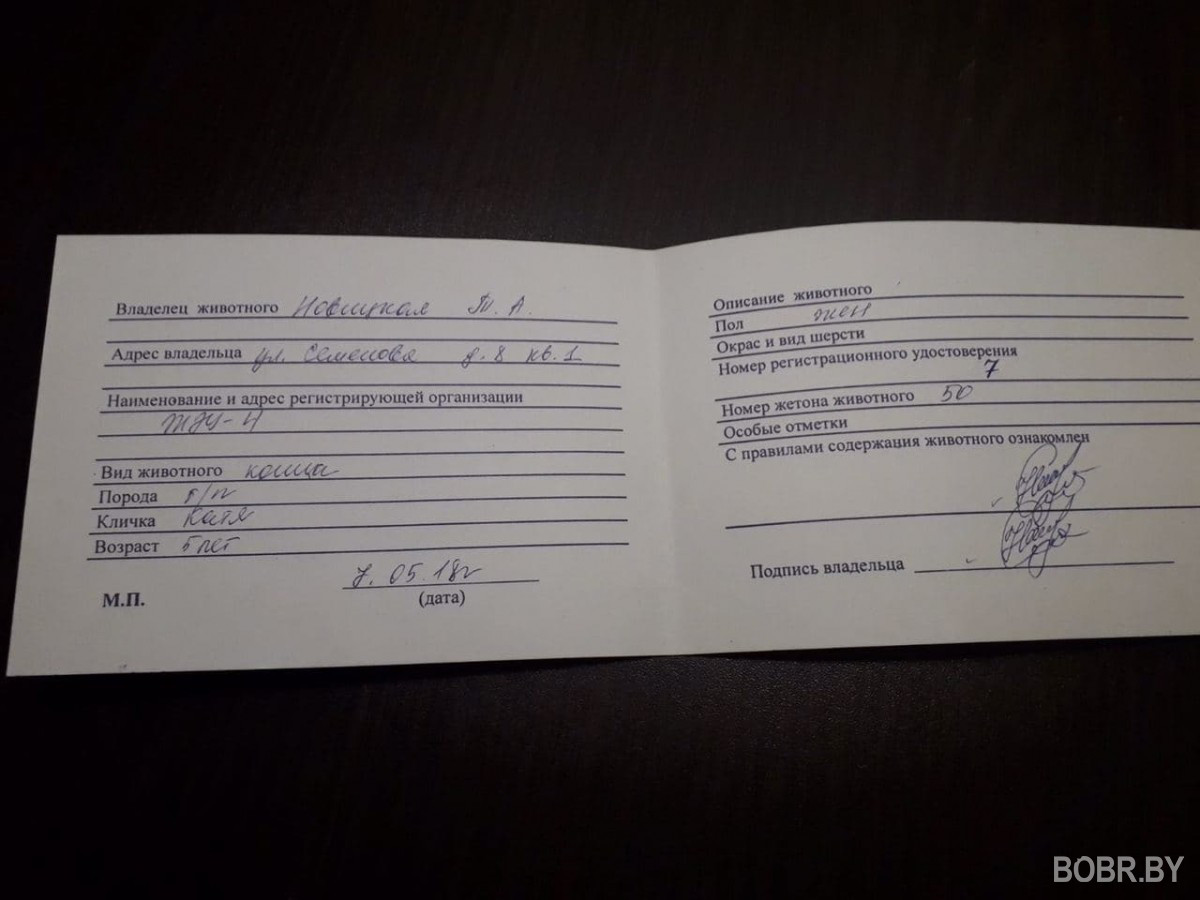 Владелец животного Новицкая Т. А.
Адрес владельца ул. Семенова д. 8 кв. 1
Наименование и адрес регистрирующей организации
ЖЭУ-4
Вид животного кошка
Порода б/п
Кличка Катя
Возраст 5 лет
7. 05. 18г
М.П. (дата)
Описание животного
Пол жен
Окрас и вид шерсти
Номер регистрационного удостоверения
7
Номер жетона животного 50
Особые отметки
С правилами содержания животного ознакомлен
Подпись владельца
BOBR.BY